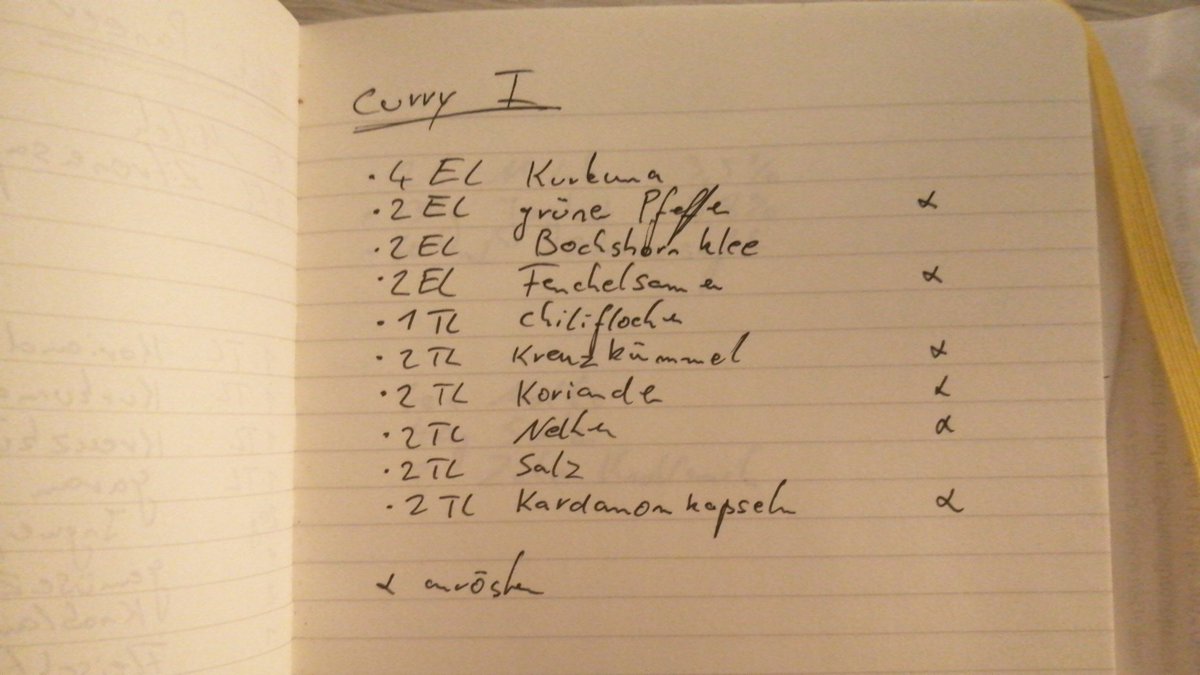 Curry I
· 4 EL Kurkuma
· 2 EL grüne Pfeffer α
· 2 EL Bockshornklee
· 2 EL Fenchelsamen α
· 1 TL Chiliflocken
· 2 TL Kreuzkümmel α
· 2 TL Koriander α
· 2 TL Nelken α
· 2 TL Salz
· 2 TL Kardamomkapseln α
α anrösten